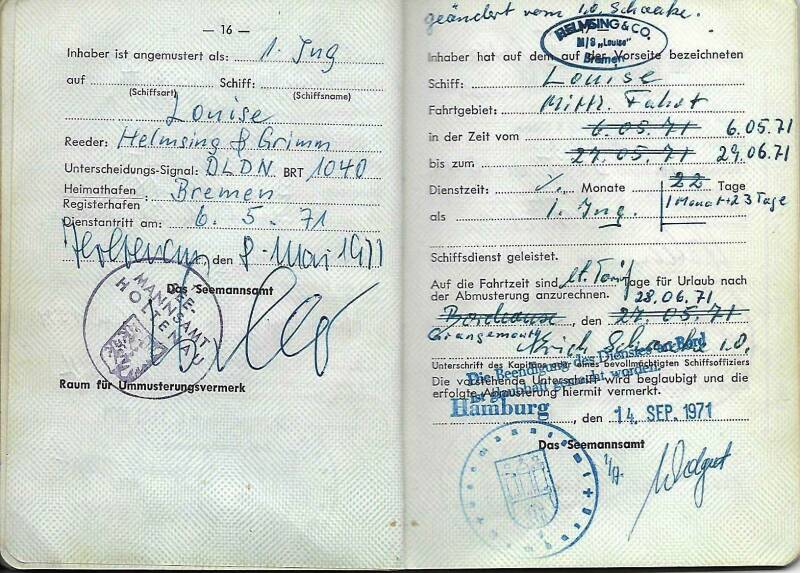 — 16 —
Inhaber ist angemustert als: 1. Ing
auf Schiff:
(Schiffsart) (Schiffsname)
Louise
Reeder: Helmsing & Grimm
Unterscheidungs-Signal: DLDN BRT 1040
Heimathafen Bremen
Registerhafen
Dienstantritt am: 6. 5. 71
Holtenau, den 8. Mai 1971
Das Seemannsamt
SEE-
MANNSAMT
HOLTENAU
Raum für Ummusterungsvermerk
geändert vom 1.O. Schaake.
HELMSING & CO.
M/S „Louise"
Bremen
Inhaber hat auf dem auf der Vorseite bezeichneten
Schiff: Louise
Fahrtgebiet: Mittl. Fahrt
in der Zeit vom 6.05.71 6.05.71
bis zum 27.05.71 29.06.71
Dienstzeit: Monate 22 Tage
1 Monat + 23 Tage
als 1. Ing.
Schiffsdienst geleistet.
Auf die Fahrtzeit sind lt. Tarif Tage für Urlaub nach
der Abmusterung anzurechnen. 28.06.71
, den 27.05.71
Grangemouth
Schaake 1.O.
Unterschrift des Kapitäns oder eines bevollmächtigten Schiffsoffiziers
Die Beendigung des Dienstes an Bord
ist glaubhaft gemacht worden.
Die vorstehende Unterschrift wird beglaubigt und die
erfolgte Abmusterung hiermit vermerkt.
Hamburg, den 14. SEP. 1971
Das Seemannsamt
Seemannsamt Hamburg